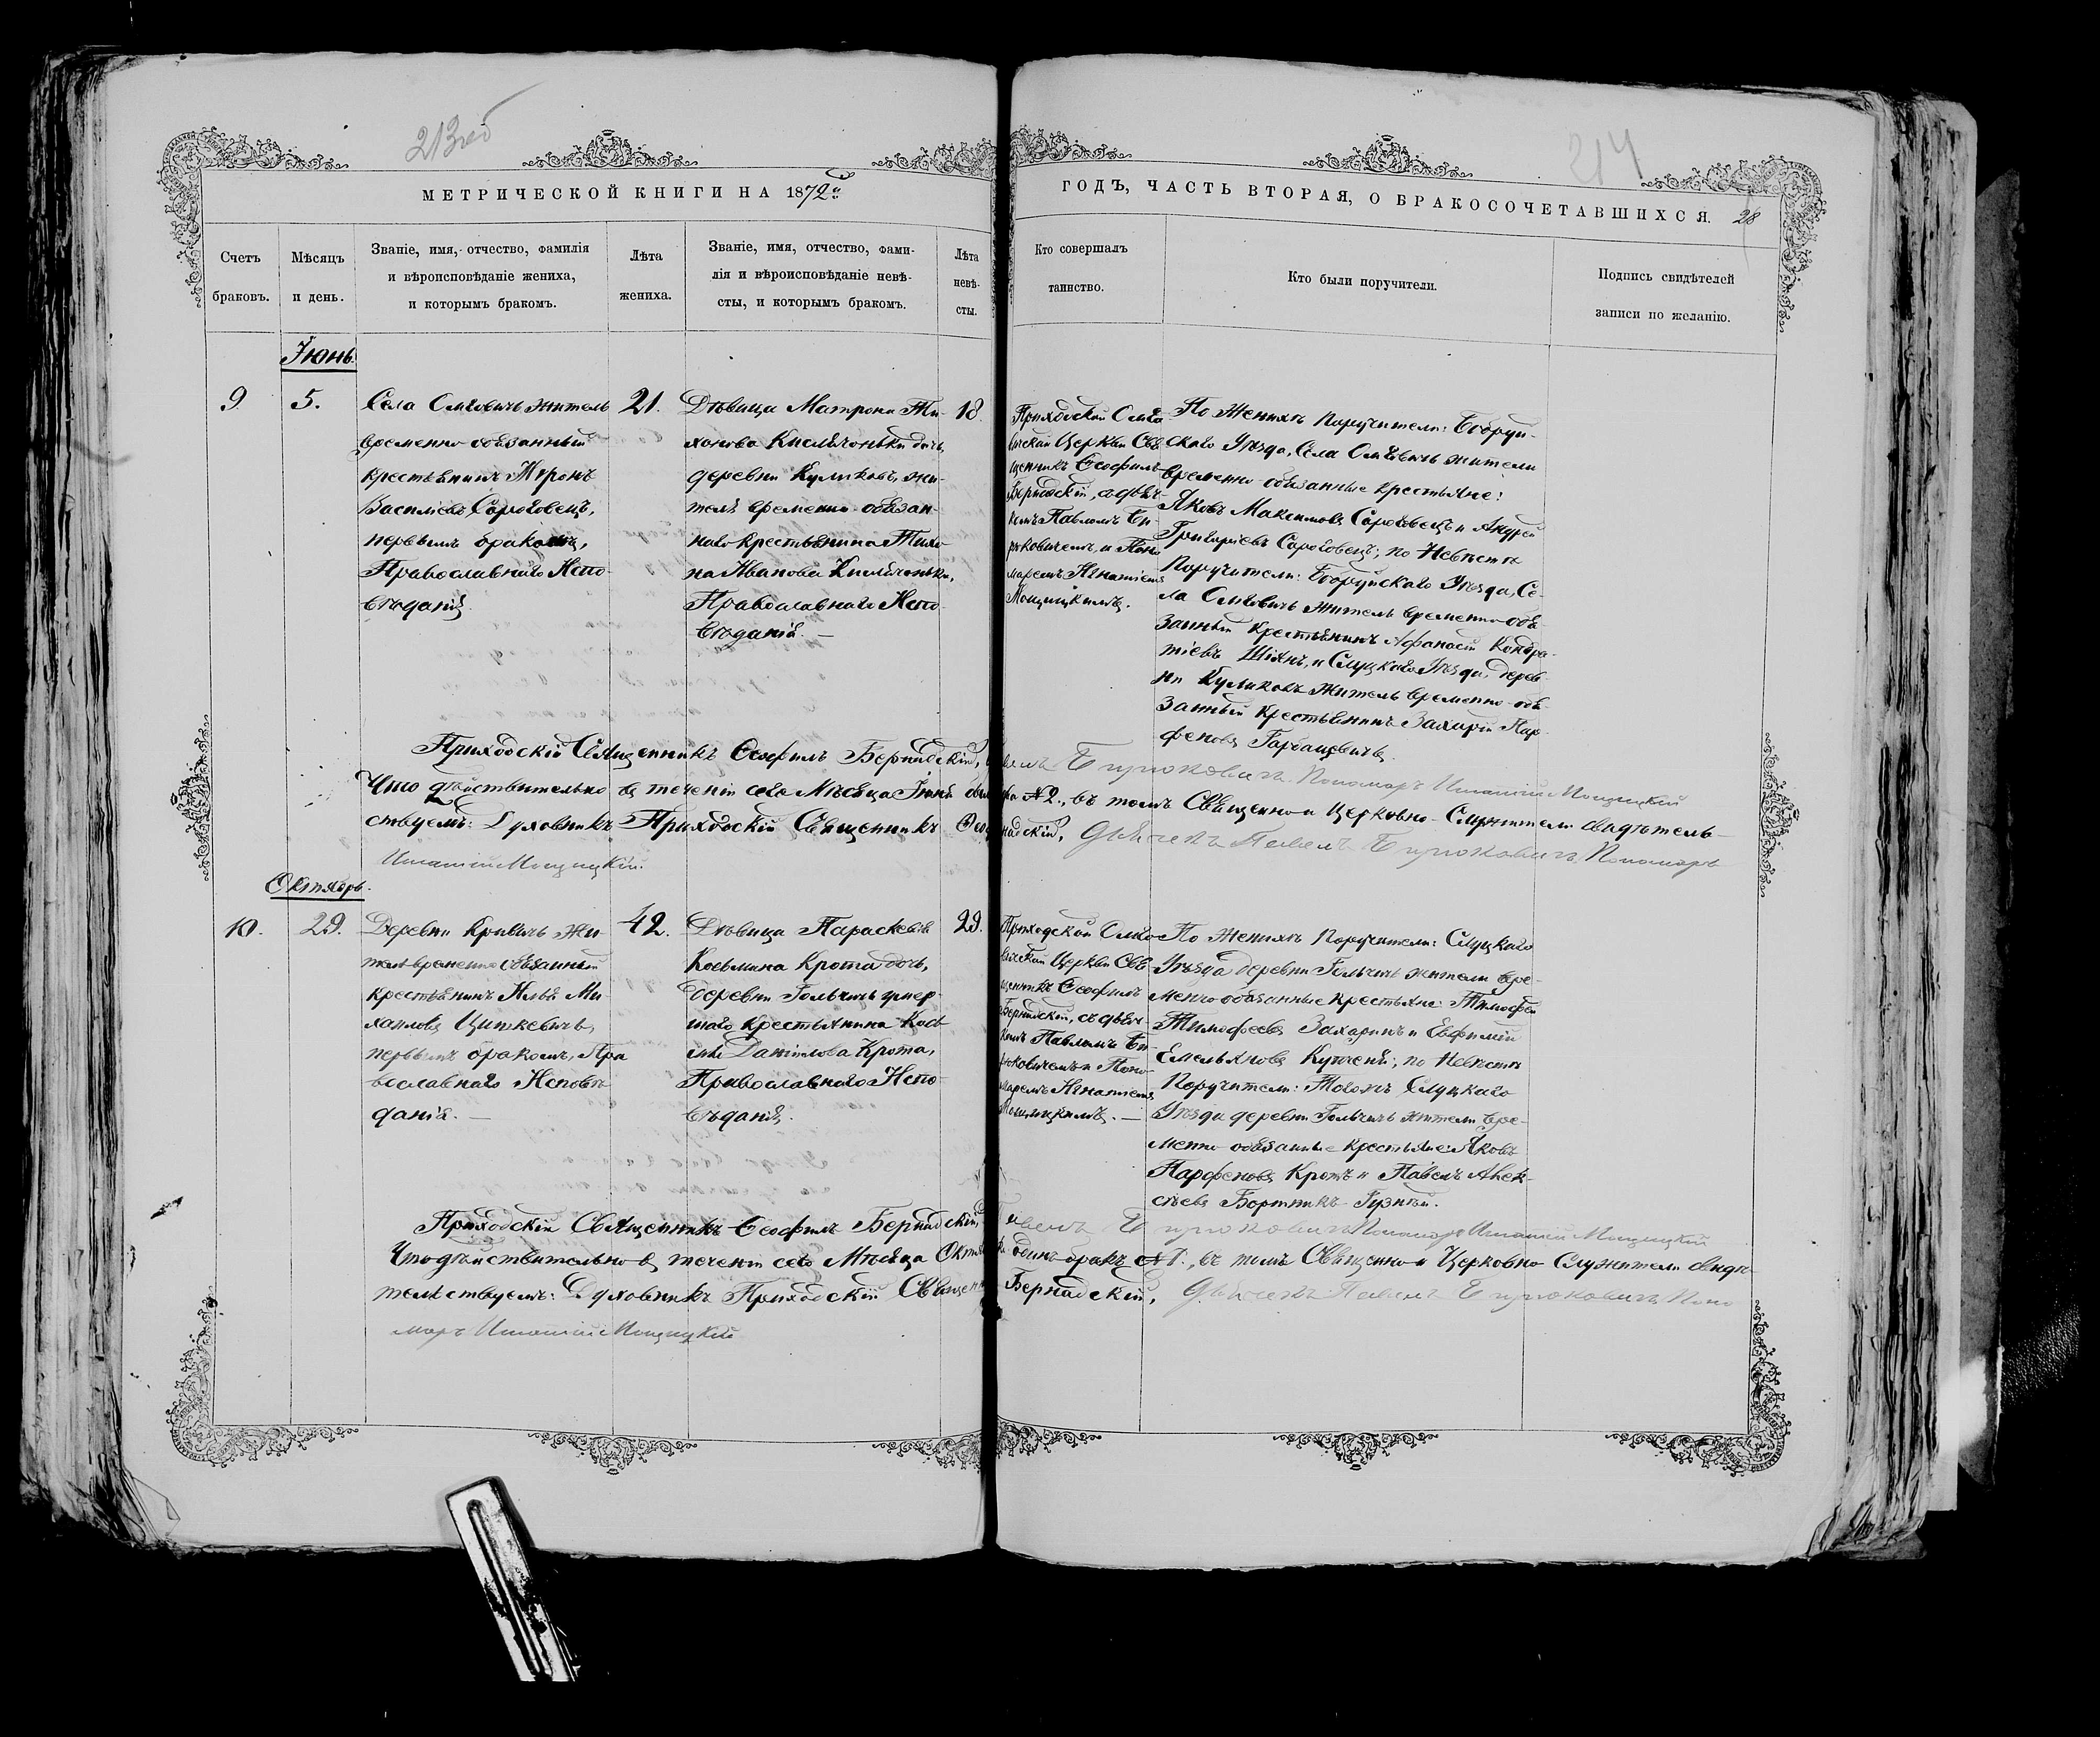 213об
214
МЕТРИЧЕСКОЙ КНИГИ НА 1872й
ГОДЪ, ЧАСТЬ ВТОРАЯ, О БРАКОСОЧЕТАВШИХСЯ.
28
Счетъ
браковъ.
Мѣсяцъ
и день.
Званіе, имя, отчество, фамилія
и вѣроисповѣданіе жениха,
и которымъ бракомъ.
Лѣта
жениха.
Званіе, имя, отчество, фами-
лія и вѣроисповѣданіе невѣ-
сты, и которымъ бракомъ.
Лѣта
невѣ-
сты.
Кто совершалъ
таинство.
Кто были поручители.
Подпись свидѣтелей
записи по желанію.
Іюнь.
9
5.
Села житель
временно обязанный
крестьянинъ Миронъ
Васильевъ Сороговецъ,
первымъ бракомъ,
Православнаго Испо-
вѣданія.
21.
Дѣвица Матрона Ти-
хонова дочь,
деревни Куликовъ жи-
теля временно-обязан-
наго крестьянина Тихо-
на Иванова
Православнаго Испо-
вѣданія. —
18
Приходской
Церкви Свя
щенникъ Ѳеофилъ
Бернадскій, съ дьяч-
комъ Павломъ Би-
рюковичемъ, и Поно
маремъ Игнатіемъ
Мощицкимъ.
По Женихѣ Поручители: Бобруй-
скаго Уѣзда, Села жители
временно-обязанные крестьяне:
Яковъ Максимовъ Сороговецъ и Андрей
Григоріевъ Сороговецъ; по Невѣстѣ
Поручители: Бобруйскаго Уѣзда, Се-
ла житель временно-обя-
занный крестьянинъ Афанасій Кондра-
тіевъ и Слуцкаго Уѣзда, дерев-
ни Куликовъ житель временно-обя-
занный крестьянинъ Захарій Пар-
феновъ Горбацевичъ.
Приходскій Священникъ Ѳеофилъ Бернадскій, Бирюковичъ Пономарь Игнатій Мощицкій
Что дѣйствительно въ теченіи сего Мѣсяца Іюня №2., въ томъ Священно и Церковно-Служители свидѣтель-
ствуемъ: Духовникъ Приходскій Священникъ Дьячекъ Павелъ Бирюковичъ, Пономарь
Игнатій Мощицкій.
Октябрь.
10.
29.
Деревни Кривичъ жи-
тель временно обязанный
крестьянинъ Илья Ми-
хайловъ Циткевичъ,
первымъ бракомъ, Пра
вославнаго Исповѣ
данія. —
42.
Дѣвица Параскевія
Козьмина Крота дочь,
деревни Гольчичъ умер-
шаго крестьянина Кось-
мы Даніилова Крота,
Православнаго Испо-
вѣданія.
29.
Приходской
Церкви Свя
щенникъ Ѳеофилъ
Бернадскій, съ дьяч-
комъ Павломъ Би-
рюковичемъ и Поно-
маремъ Игнатіемъ
Мощицкимъ. —
По Женихѣ Поручители: Слуцкаго
Уѣзда деревни Гольчичъ жители вре-
менно обязанные крестьяне: Тимофей
Тимофеевъ Захаринъ и Евфимій
Емельяновъ по Невѣстѣ
Поручители: Тогожъ Слуцкаго
Уѣзда деревни Гольчичъ жители вре-
менно обязанные крестьяне: Яковъ
Парфеновъ Кротъ и Павелъ Алек-
сѣевъ Бортникъ
Приходскій Священникъ Ѳеофилъ Бернадскій, Павелъ Бирюковичъ Пономарь Игнатій Мощицкій
Что дѣйствительно въ теченіи сего Мѣсяца одинъ бракъ №1., въ томъ Священно и Церковно Служители свидѣ-
тельствуемъ: Духовникъ Приходскій Бернадскій, Дьячекъ Павелъ Бирюковичъ, Поно
марь Игнатій Мощицкій